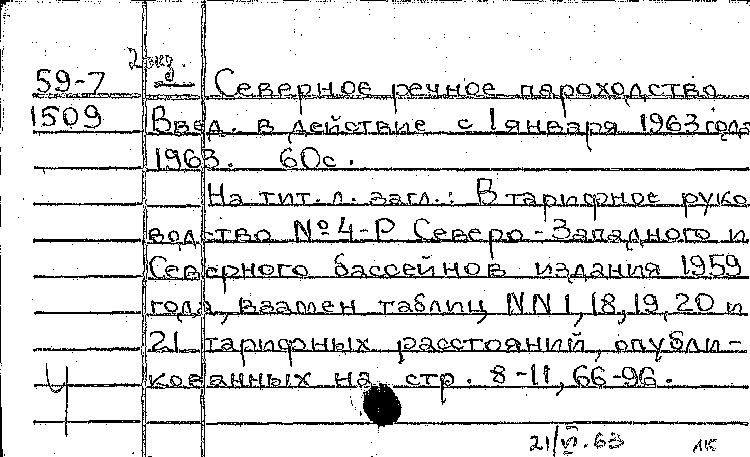 2 экз.
59-7 — Северное речное пароходство
1509 Введ. в действие с 1 января 1963 года
1963. 60с.
На тит. л. загл.: В тарифное руко
водство № 4-Р Северо-Западного и
Северного бассейнов издания 1959
года, взамен таблиц NN 1, 18, 19, 20 и
21 тарифных расстояний, опубли-
кованных на стр. 8-11, 66-96.
Ч
21/VI.63 ЛК